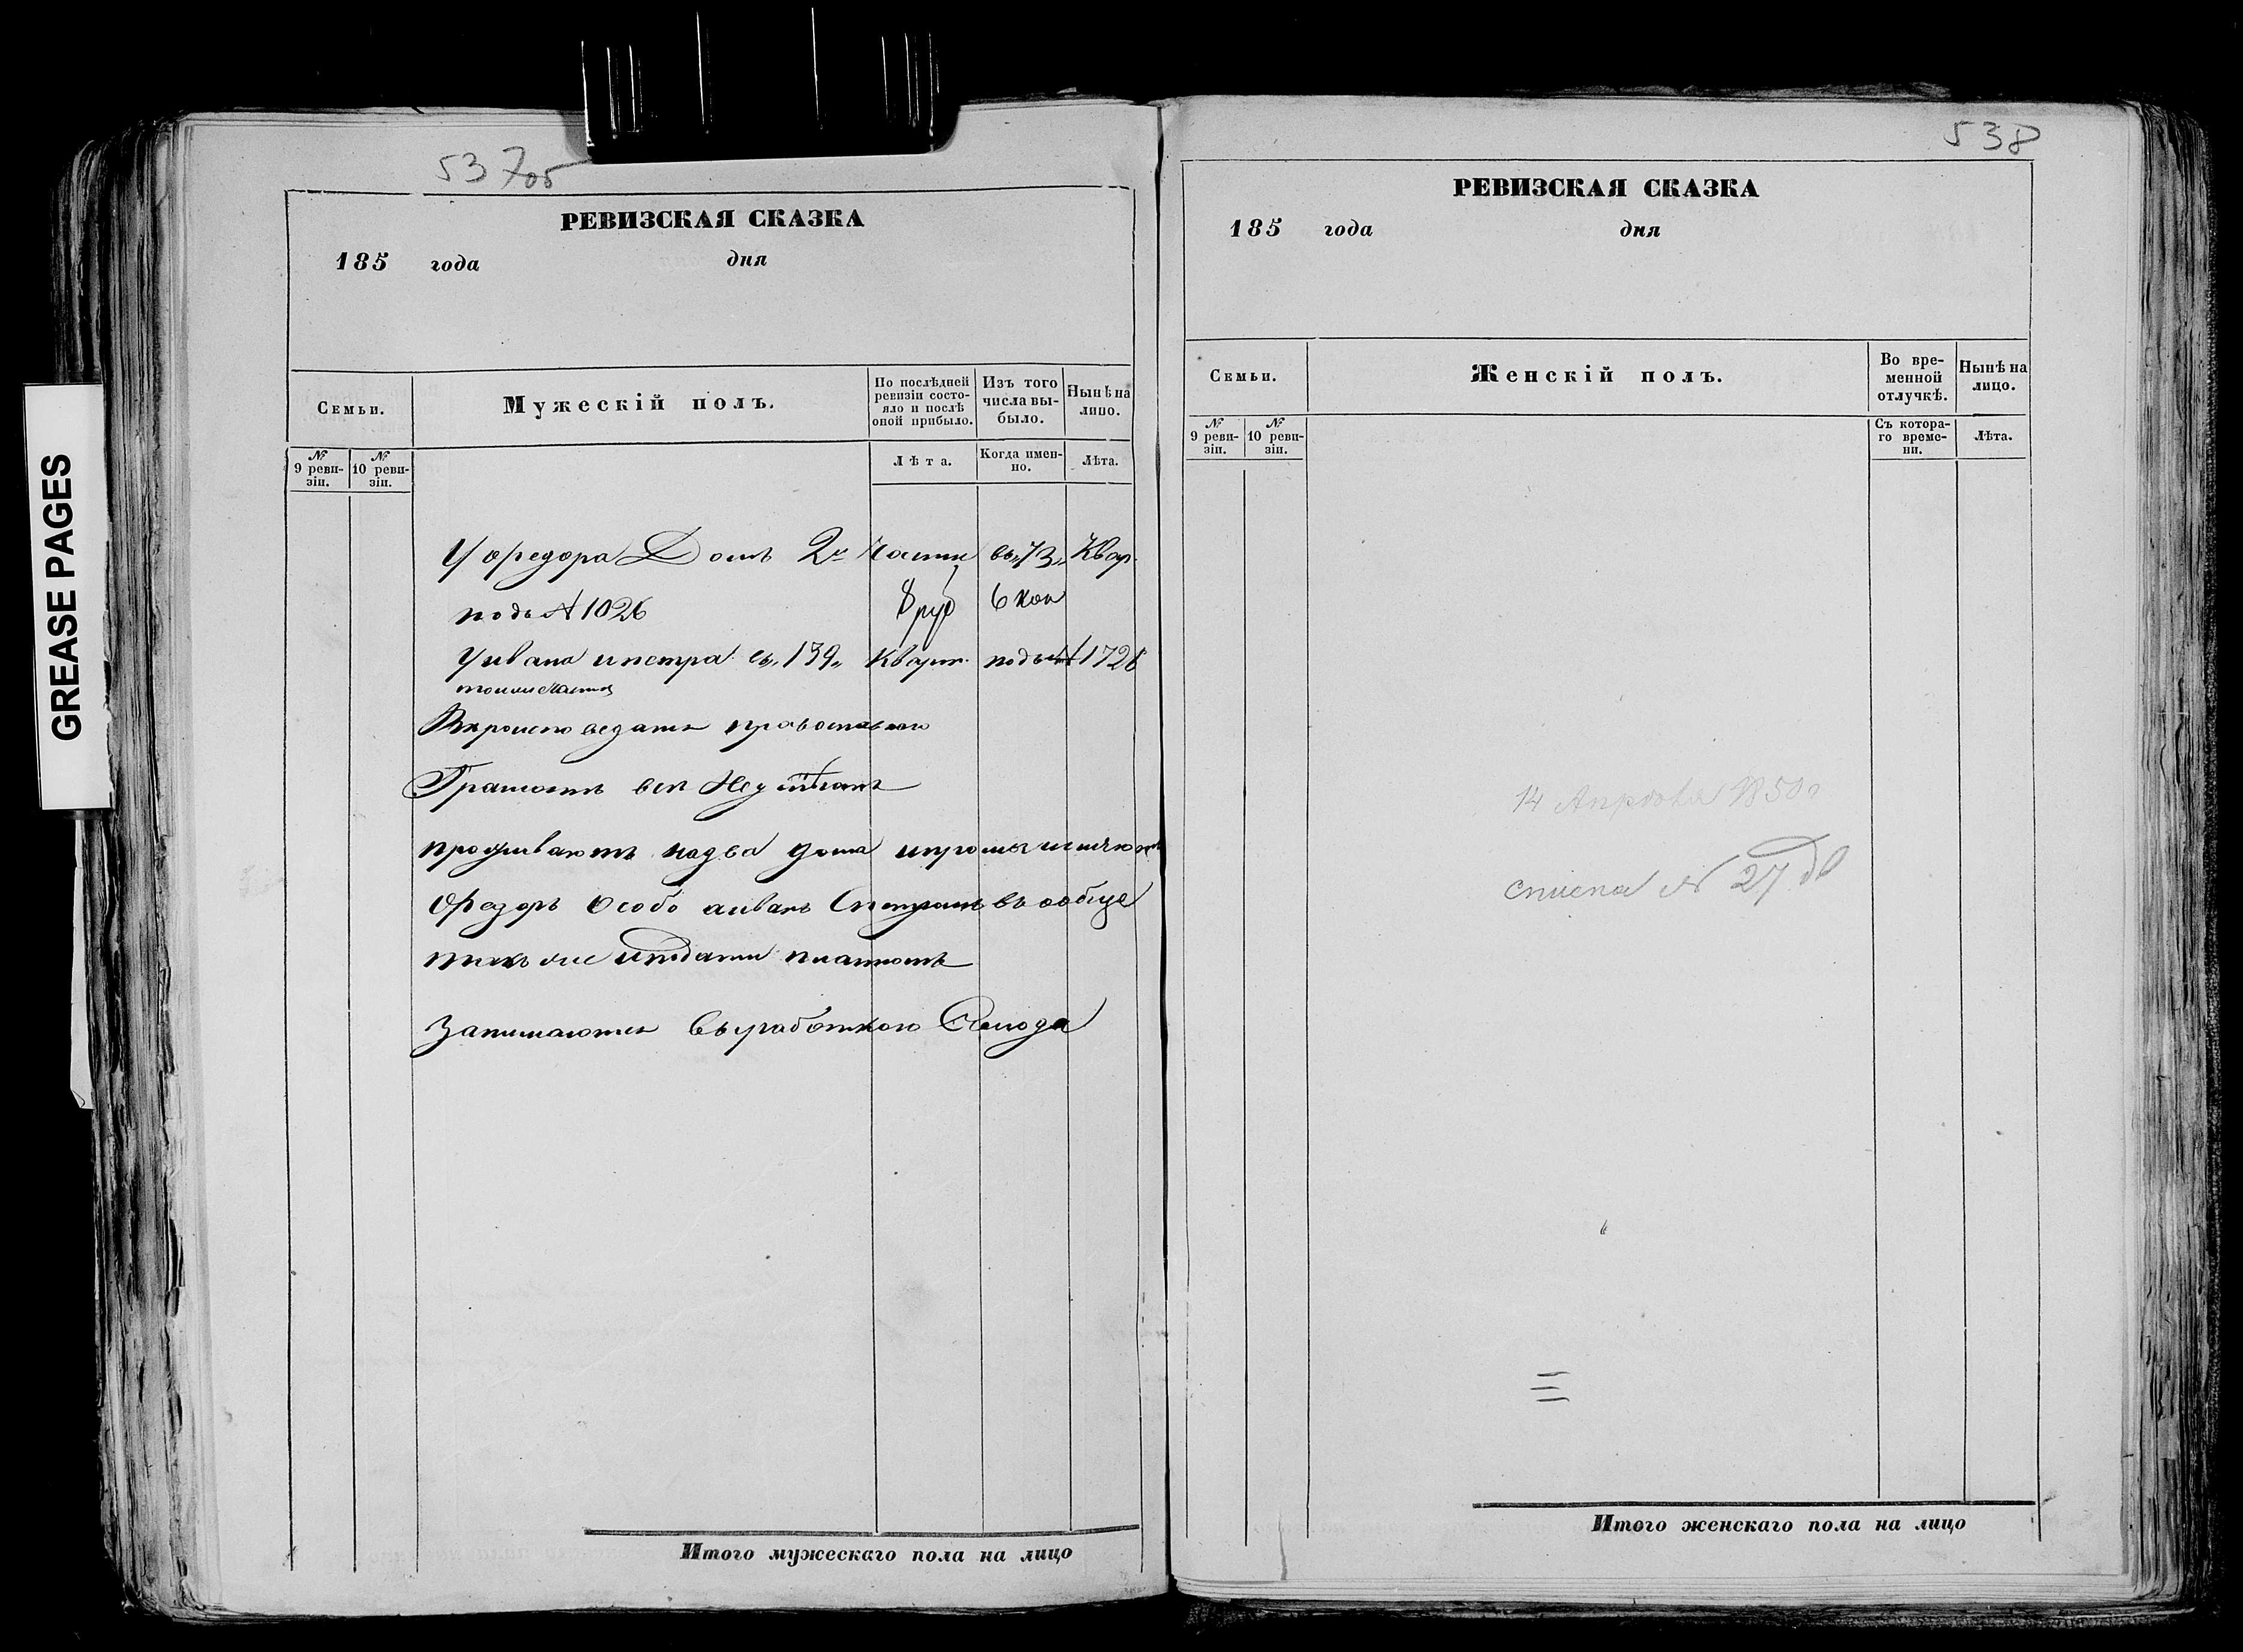 GREASE PAGES
537об
РЕВИЗСКАЯ СКАЗКА
185 года дня
Семьи.
Мужескій полъ.
По послѣдней ревизіи состояло и послѣ оной прибыло.
Изъ того числа выбыло.
Нынѣ на лицо.
№ 9 ревизіи.
№ 10 ревизіи.
Лѣта.
Когда именно.
Лѣта.
У Федора Домъ 2й Части въ „73„ Квар.
подъ № 1026 8 руб 6 коп
У ивана ипетра въ „139„ Кварт. подъ № 1728
тойже части
православнаго
Грамотѣ все Не
проживаютъ на два дома
Федоръ Особо аиванъ Спетромъ въ ообще
также иподати платютъ
Занимаются Выработкою Солода
538
РЕВИЗСКАЯ СКАЗКА
185 года дня
Семьи.
Женскій полъ.
Во временной отлучкѣ.
Нынѣ на лицо.
№ 9 ревизіи.
№ 10 ревизіи.
Съ котораго времени.
Лѣта.
14 Апрѣля 1850
списка № 27
Итого мужескаго пола на лицо
Итого женскаго пола на лицо